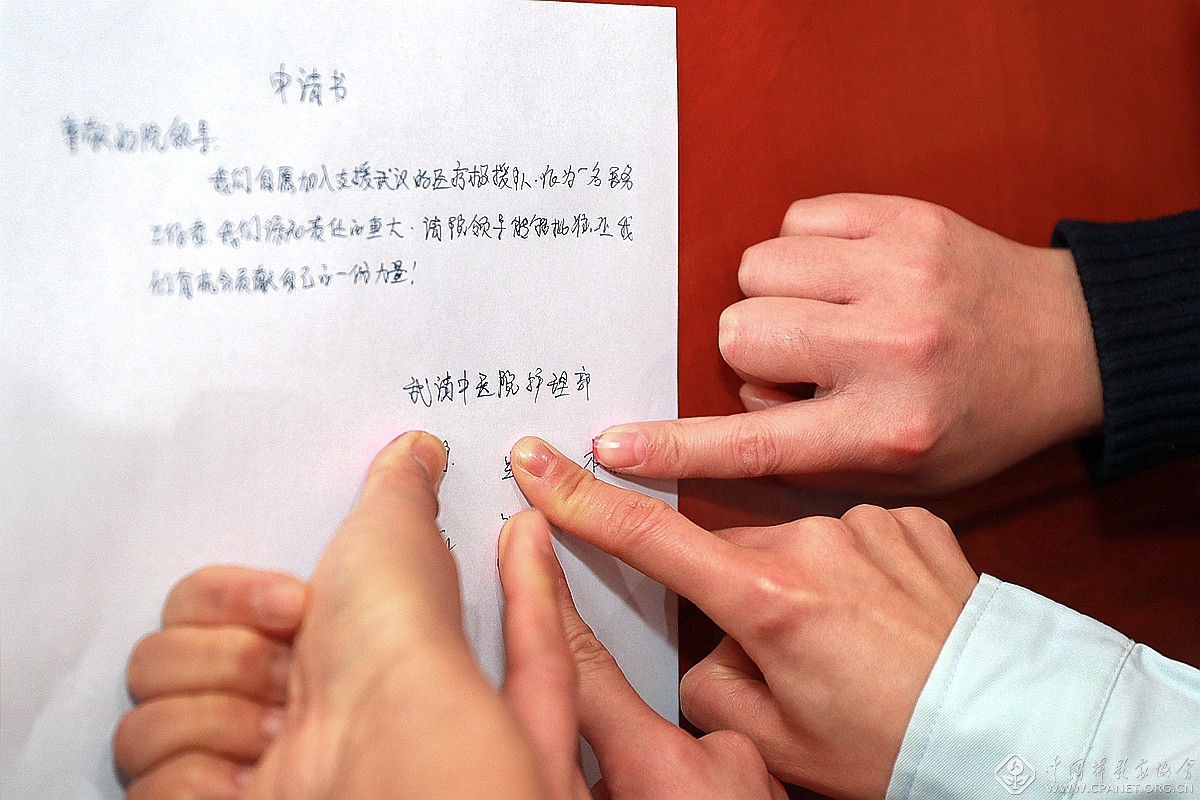 申请书
尊敬的院领导
我们自愿加入支援武汉的医疗救援队.作为一名医务
工作者 我们深知责任的重大.请院领导能够批准,让我
们有机会贡献自己的一份力量!
武清中医院护理部
中国摄影家协会
WWW.CPANET.ORG.CN